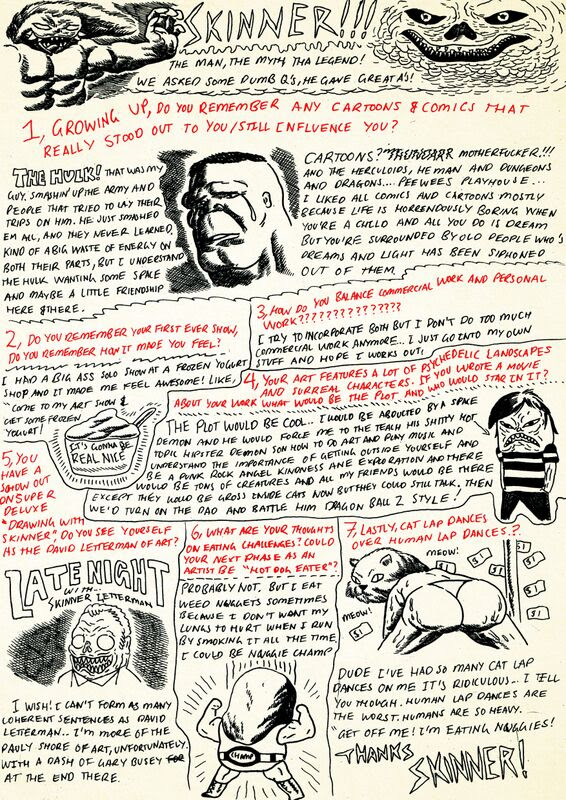 SKINNER!!!
THE MAN, THE MYTH THA LEGEND!
WE ASKED SOME DUMB Q'S, HE GAVE GREAT A'S!
1, GROWING UP, DO YOU REMEMBER ANY CARTOONS & COMICS THAT
REALLY STOOD OUT TO YOU/STILL INFLUENCE YOU?
THE HULK! THAT WAS MY
GUY. SMASHIN' UP THE ARMY AND
PEOPLE THAT TRIED TO LAY THEIR
TRIPS ON HIM. HE JUST SMASHED
EM ALL, AND THEY NEVER LEARNED.
KIND OF A BIG WASTE OF ENERGY ON
BOTH THEIR PARTS, BUT I UNDERSTAND
THE HULK WANTING SOME SPACE
AND MAYBE A LITTLE FRIENDSHIP
HERE & THERE.
CARTOONS? THUNDARR MOTHERFUCKER!!!
AND THE HERCULOIDS, HE MAN AND DUNGEONS
AND DRAGONS.... PEEWEES PLAYHOUSE...
I LIKED ALL COMICS AND CARTOONS MOSTLY
BECAUSE LIFE IS HORRENDOUSLY BORING WHEN
YOU'RE A CHILD AND ALL YOU DO IS DREAM
BUT YOU'RE SURROUNDED BY OLD PEOPLE WHO'S
DREAMS AND LIGHT HAS BEEN SIPHONED
OUT OF THEM.
2, DO YOU REMEMBER YOUR FIRST EVER SHOW,
DO YOU REMEMBER HOW IT MADE YOU FEEL?
I HAD A BIG ASS SOLO SHOW AT A FROZEN YOGURT
SHOP AND IT MADE ME FEEL AWESOME! LIKE,
"COME TO MY ART SHOW &
GET SOME FROZEN
YOGURT!
IT'S GONNA BE
REAL NICE
3, HOW DO YOU BALANCE COMMERCIAL WORK AND PERSONAL
WORK????????????????
I TRY TO INCORPORATE BOTH BUT I DON'T DO TOO MUCH
COMMERCIAL WORK ANYMORE... I JUST GO INTO MY OWN
STUFF AND HOPE I WORKS OUT!
4, YOUR ART FEATURES A LOT OF PSYCHEDELIC LANDSCAPES
AND SURREAL CHARACTERS. IF YOU WROTE A MOVIE
ABOUT YOUR WORK WHAT WOULD BE THE PLOT AND WHO WOULD STAR IN IT?
THE PLOT WOULD BE COOL... I WOULD BE ABDUCTED BY A SPACE
DEMON AND HE WOULD FORCE ME TO THE TEACH HIS SHITTY HOT
TOPIC HIPSTER DEMON SON HOW TO DO ART AND PLAY MUSIC AND
UNDERSTAND THE IMPORTANCE OF GETTING OUTSIDE YOURSELF AND
BE A PUNK ROCK ANGEL KINDNESS AND EXPLORATION AND THERE
WOULD BE TONS OF CREATURES AND ALL MY FRIENDS WOULD BE THERE
EXCEPT THEY COULD BE GROSS UNDIE CATS NOW BUT THEY COULD STILL TALK. THEN
WE'D TURN ON THE DAD AND BATTLE HIM DRAGON BALL Z STYLE!
5, YOU
HAVE A
SHOW OUT
ON SUPER
DELUXE
"DRAWING WITH
SKINNER". DO YOU SEE YOURSELF
AS THE DAVID LETTERMAN OF ART?
LATE NIGHT
WITH
SKINNER LETTERMAN
I WISH! I CAN'T FORM AS MANY
COHERENT SENTENCES AS DAVID
LETTERMAN.. I'M MORE OF THE
PAULY SHORE OF ART, UNFORTUNATELY.
WITH A DASH OF GARY BUSEY FOR
AT THE END THERE.
6, WHAT ARE YOUR THOUGHTS
ON EATING CHALLENGES? COULD
YOUR NEXT PHASE AS AN
ARTIST BE "HOT DOG EATER"?
PROBABLY NOT. BUT I EAT
WEED NUGGETS SOMETIMES
BECAUSE I DON'T WANT MY
LUNGS TO HURT WHEN I RUN
BY SMOKING IT ALL THE TIME,
I COULD BE NUGGIE CHAMP
CHAMP
7, LASTLY, CAT LAP DANCES
OVER HUMAN LAP DANCES?
MEOW!
MEOW!
$1
$1
$1
$1
$1
$1
DUDE I'VE HAD SO MANY CAT LAP
DANCES ON ME IT'S RIDICULOUS... I TELL
YOU THOUGH. HUMAN LAP DANCES ARE
THE WORST. HUMANS ARE SO HEAVY.
"GET OFF ME! I'M EATING NUGGIES!
THANKS
SKINNER!